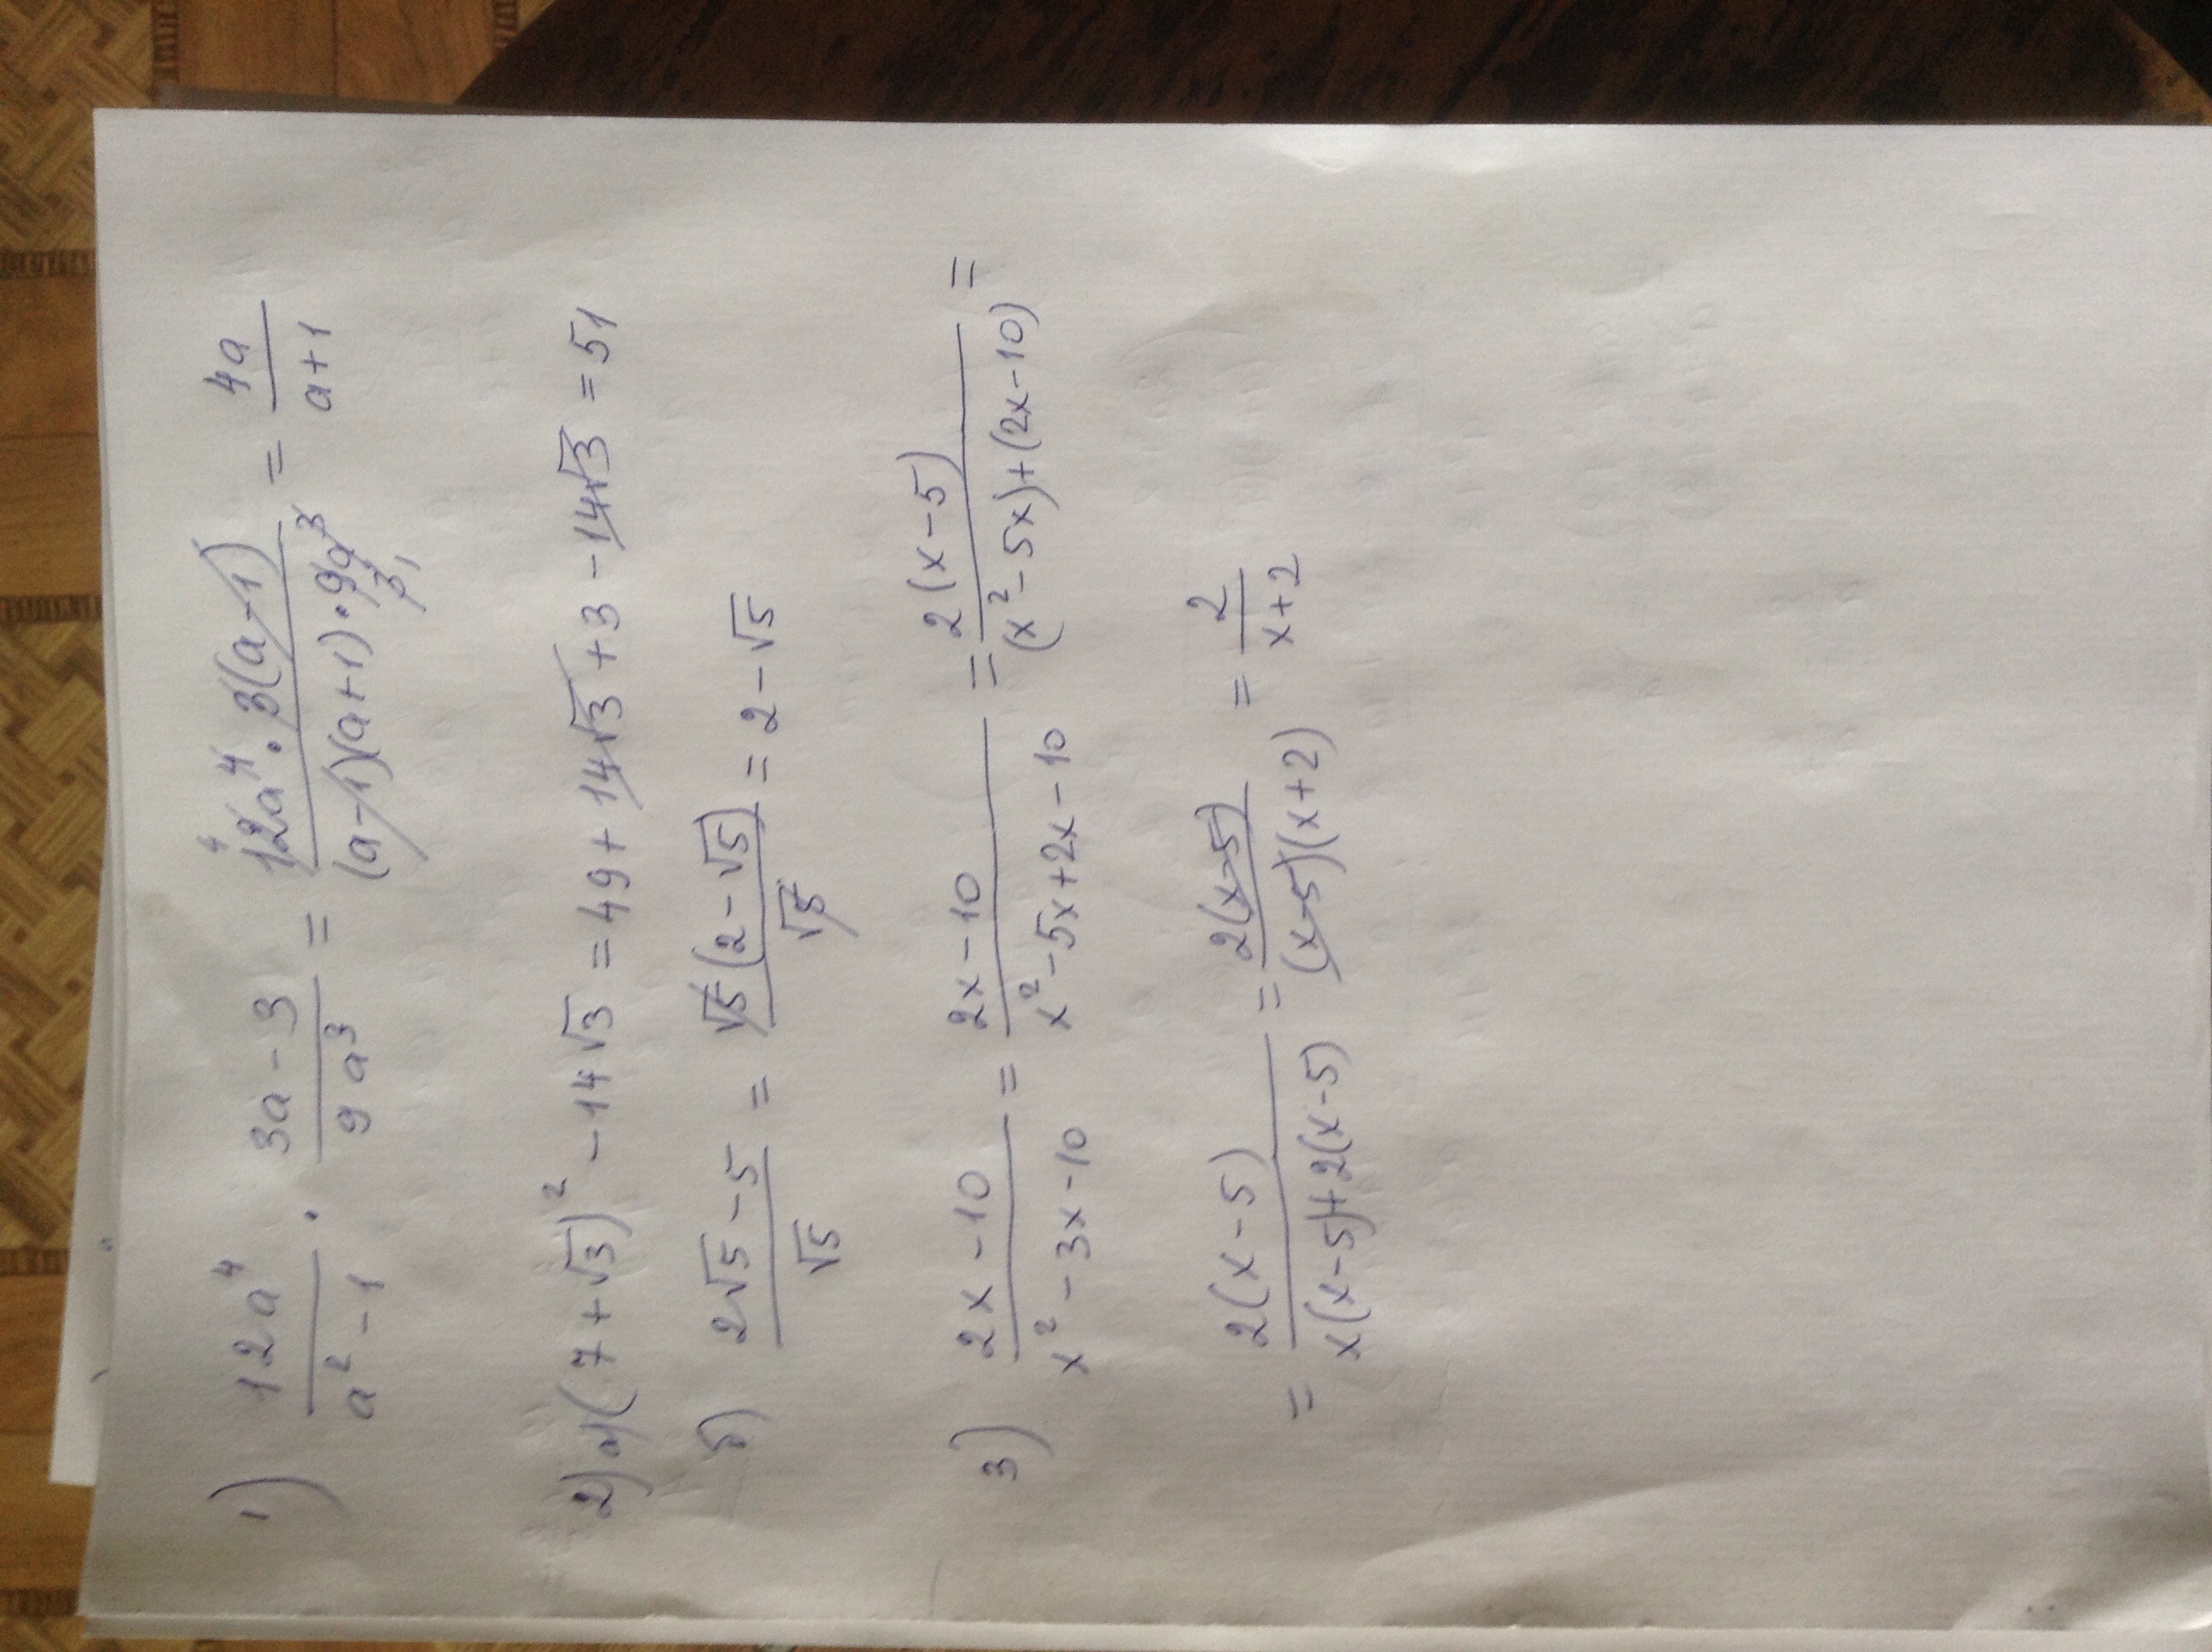 1) 12a⁴/(a² - 1) · (3a - 3)/(9a³) = (12a⁴ · 3(a-1))/((a-1)(a+1) · 9a³) = 4a/(a+1)
2) а) (7 + √3)² - 14√3 = 49 + 14√3 + 3 - 14√3 = 51
б) (2√5 - 5)/√5 = (√5(2 - √5))/√5 = 2 - √5
3) (2x - 10)/(x² - 3x - 10) = (2x - 10)/(x² - 5x + 2x - 10) = (2(x - 5))/((x² - 5x) + (2x - 10)) =
= (2(x - 5))/(x(x - 5) + 2(x - 5)) = (2(x-5))/((x-5)(x+2)) = 2/(x+2)